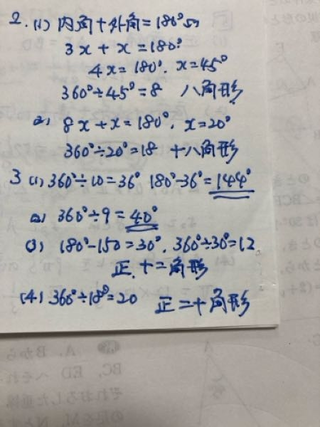 2.(1) 内角+外角=180°より
3x+x=180°
4x=180°. x=45°
360°÷45°=8 八角形
(2) 8x+x=180°. x=20°
360°÷20°=18 十八角形
3 (1) 360°÷10=36° 180°-36°=144°
(2) 360°÷9=40°
(3) 180°-150=30°. 360°÷30°=12
正.十二角形
(4) 360°÷18°=20 正二十角形